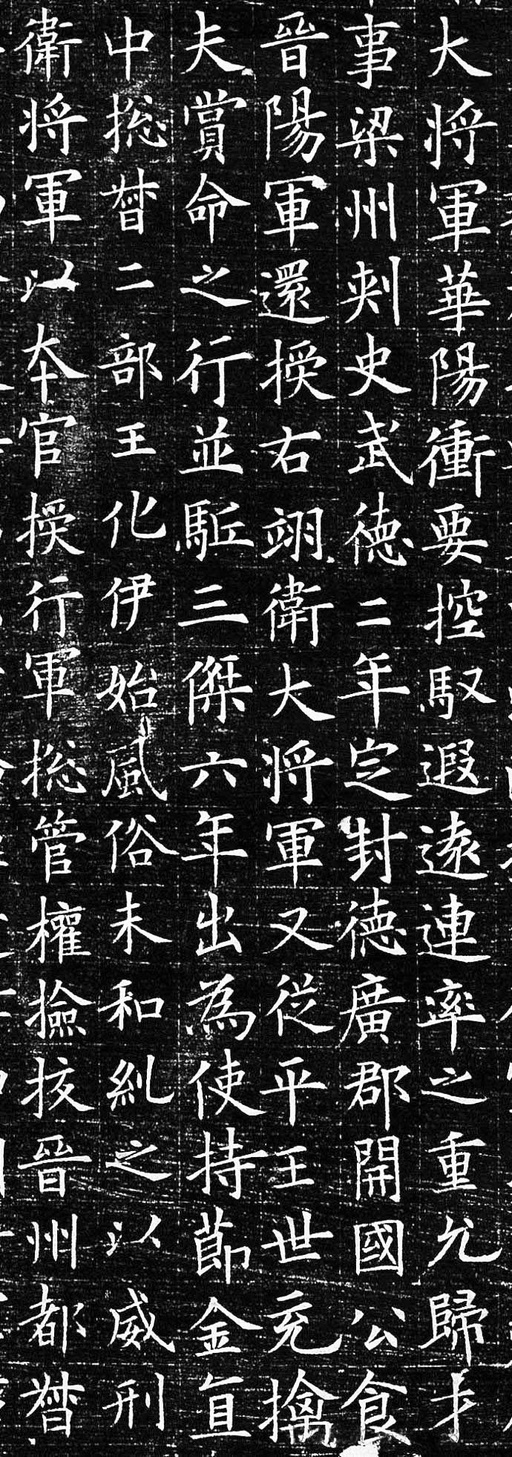 大将軍華陽衝要控馭遐遠連率之重允歸才
事梁州刺史武德二年㝎封德廣郡開國公食
晉陽軍還授右翊衛大将軍又從平王世充擒
夫賞命之行並駈三傑六年出為使持節金直
中捴督二部王化伊始風俗未和糺之以威刑
衛将軍以本官授行軍捴管權撿挍晉州都督